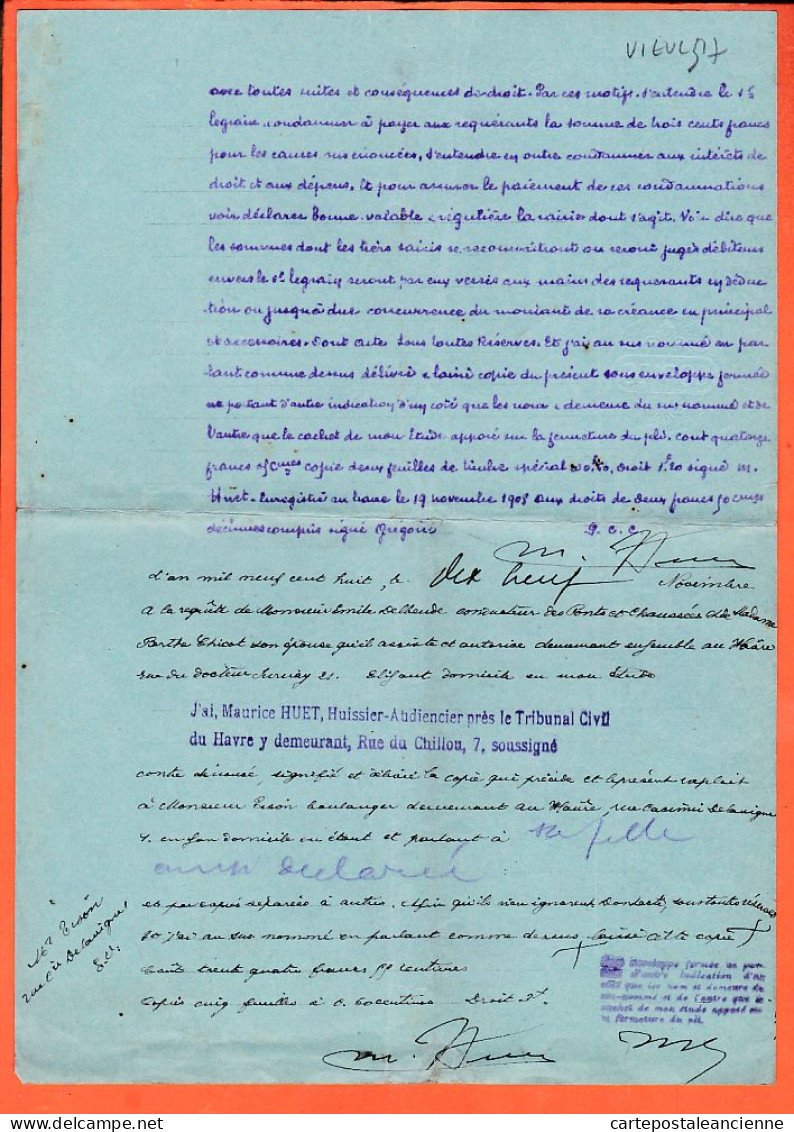 VIEUL517
avec toutes suites et conséquences de droit. Par ces motifs. S'entendre le Sr
legrain condamner à payer aux requérants la somme de trois cents francs
pour les causes sus énoncées, s'entendre en outre condamner aux intérêts de
droit et aux dépens. Et pour assurer le paiement de ces condamnations
voir déclarer bonne valable & régulière la saisie dont s'agit. Voir dire que
les sommes dont les tiers saisis se reconnaitront ou seront jugés débiteurs
envers le Sr legrain seront par eux versés aux mains des requérants en déduc
tion ou jusqu'à due concurrence du montant de sa créance en principal
et accessoires. Dont acte sous toutes Réserves. Et j'ai au sus nommé en par
lant comme dessus délivré & laissé copie du présent sous enveloppe fermée
ne portant d'autre indication d'un coté que les nom & demeure du sus nommé et de
l'autre que le cachet de mon Etude apposé sur la fermeture du pli. cout quatorze
francs copie deux feuilles de timbre spécial Droit signé M.
Huet. Enregistré au havre le 19 novembre 1908 aux droits de deux francs 50 cmes
décimes compris signé P. C. C.
M. Huet
L'an mil neuf cent huit, le dix neuf Novembre
A la requête de Monsieur Emile Delheude conducteur des Ponts et Chaussées & de Madame
Berthe Thicot son épouse qu'il assiste et autorise demeurant ensemble au Hâvre
rue du docteur 21. Elisant domicile en mon Etude
J'ai, Maurice HUET, Huissier-Audiencier près le Tribunal Civil
du Havre y demeurant, Rue du Chillou, 7, soussigné
contre dénoncé, signifié et délivré la copie qui précède et le présent exploit
à Monsieur Erson boulanger demeurant au Hâvre, rue Casimir Delavigne
en son domicile où étant et parlant à sa fille
ainsi déclaré
et par copies séparées à autres. Afin qu'ils n'en ignorent Dont acte, sous toutes réserves
Et j'ai au sus nommé en parlant comme dessus laissé cette copie
Coût trente quatre francs centimes
Copies cinq feuilles à 0.60 centimes Droit
Mr Erson
rue Cir Delavigne
S.V.
sous enveloppe fermée ne por-
tant d'autre indication d'un
côté que les nom et demeure du
sus-nommé et de l'autre que le
cachet de mon étude apposé sur
la fermeture du pli.
M. Huet
delcampe.net
cartepostaleancienne